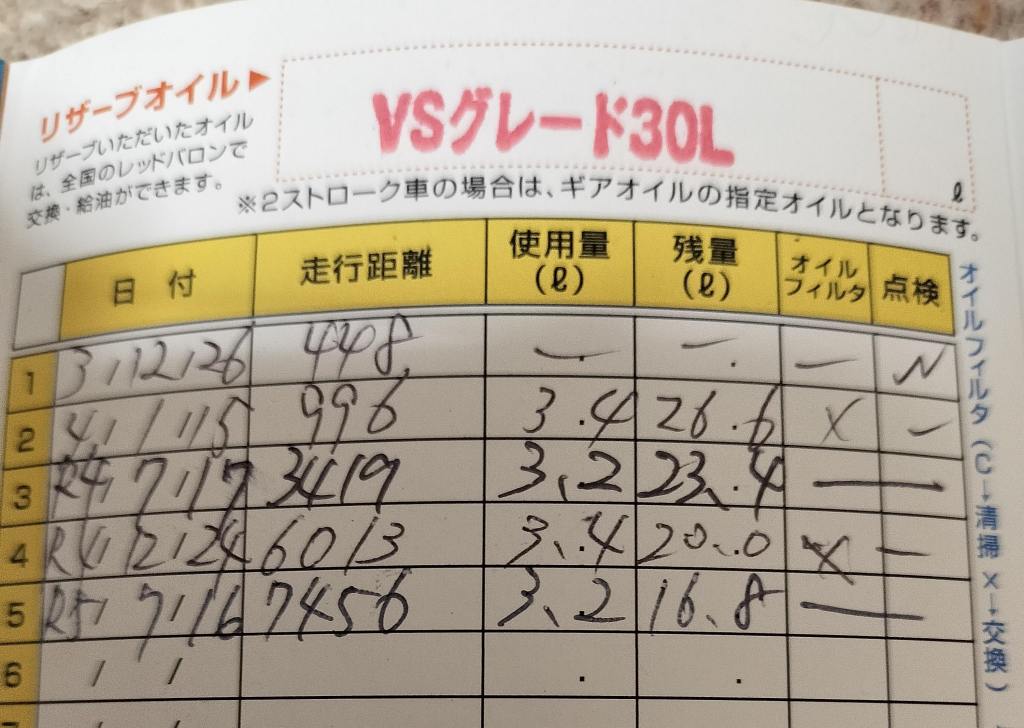 リザーブオイル▶
リザーブいただいたオイル
は、全国のレッドバロンで
交換・給油ができます。
VSグレード30L
ℓ
※2ストローク車の場合は、ギアオイルの指定オイルとなります。
日 付 走行距離 使用量(ℓ) 残量(ℓ) オイルフィルタ 点検
1 3/12/26 448 — — — レ
2 4/1/15 996 3.4 26.6 X —
3 R4/7/17 3419 3.2 23.4 —
4 R4/12/24 6013 3.4 20.0 X —
5 R5/7/16 7456 3.2 16.8 —
6 / / . .
オイルフィルタ(C→清掃 X→交換)